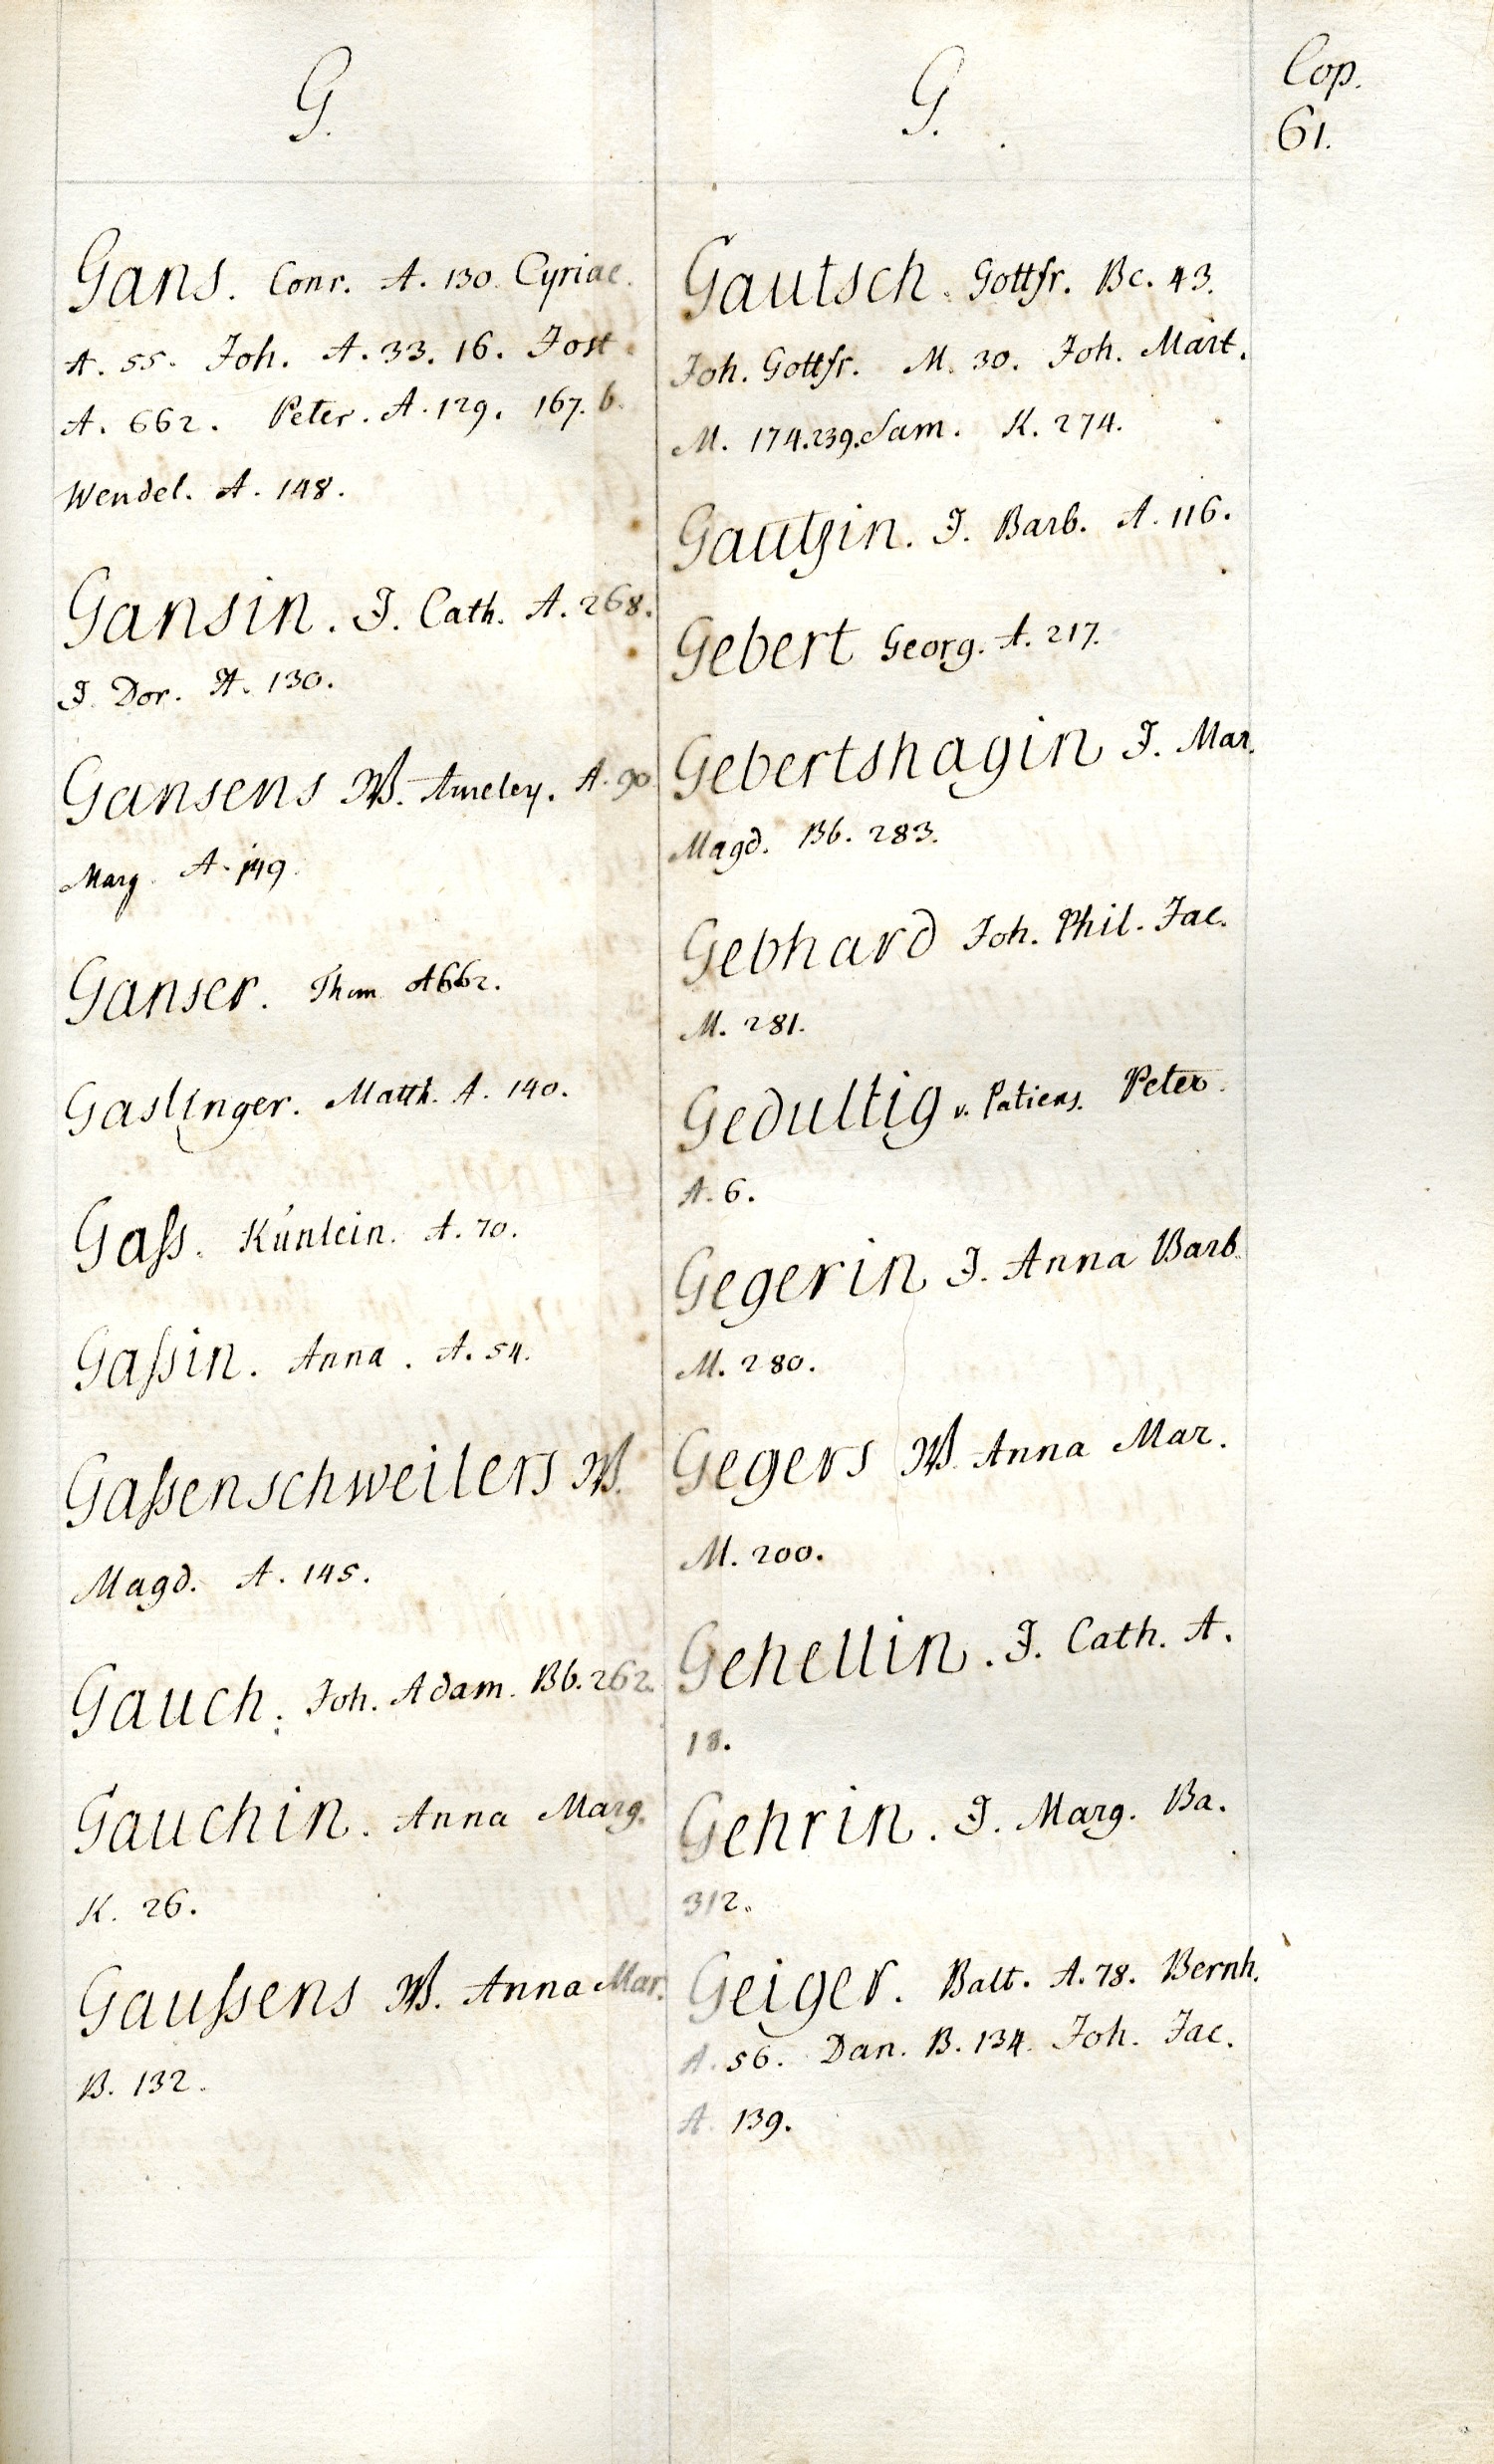 G.
Gans. Conr. A. 130. Cyriac.
A. 55. Joh. A. 33. 16. Jost.
A. 662. Peter. A. 129. 167. b.
Wendel. A. 148.
Gansin. J. Cath. A. 268.
J. Dor. A. 130.
Gansens W. Ameley. A. 90
Marg. A. 149.
Ganser. Thom A 662.
Gaslinger. Matth. A. 140.
Gaſs. Kúnlein. A. 70.
Gaſsin. Anna. A. 54.
Gaſsenschweilers W.
Magd. A. 145.
Gauch. Joh. Adam. Bb. 262.
Gauchin. Anna Marg.
K. 26.
Gauſsens W. Anna Mar.
B. 132.
G.
Gautsch. Gottfr. Bc. 43.
Joh. Gottfr. M. 30. Joh. Mart.
M. 174. 239. Sam. K. 274.
Gautzin. J. Barb. A. 116.
Gebert Georg. A. 217.
Gebertshagin J. Mar.
Magd. Bb. 283.
Gebhard Joh. Phil. Jac.
M. 281.
Gedultig v. Patiens. Peter.
A. 6.
Gegerin J. Anna Barb.
M. 280.
Gegers W. Anna Mar.
M. 200.
Gehellin. J. Cath. A.
18.
Gehrin. J. Marg. Ba.
312.
Geiger. Balt. A. 78. Bernh.
A. 56. Dan. B. 134. Joh. Jac.
A. 139.
Cop.
61.